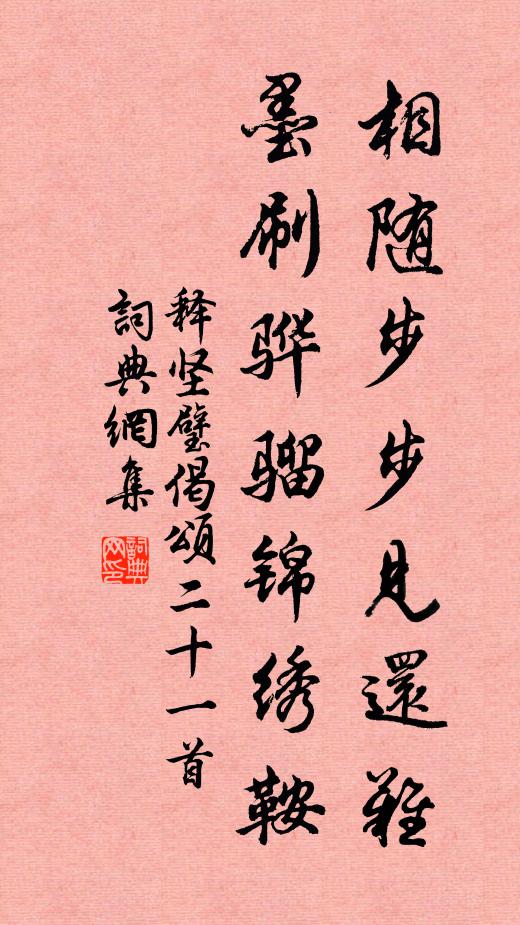 相随步步见還難
墨刷骅骝锦绣鞍
释坚璧偈颂二十一首
詞典網集
詞典网印